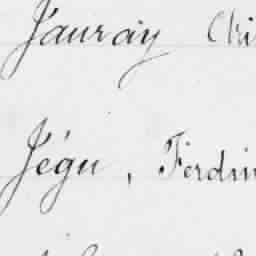 Jauray Chi
Jégu, Ferdin